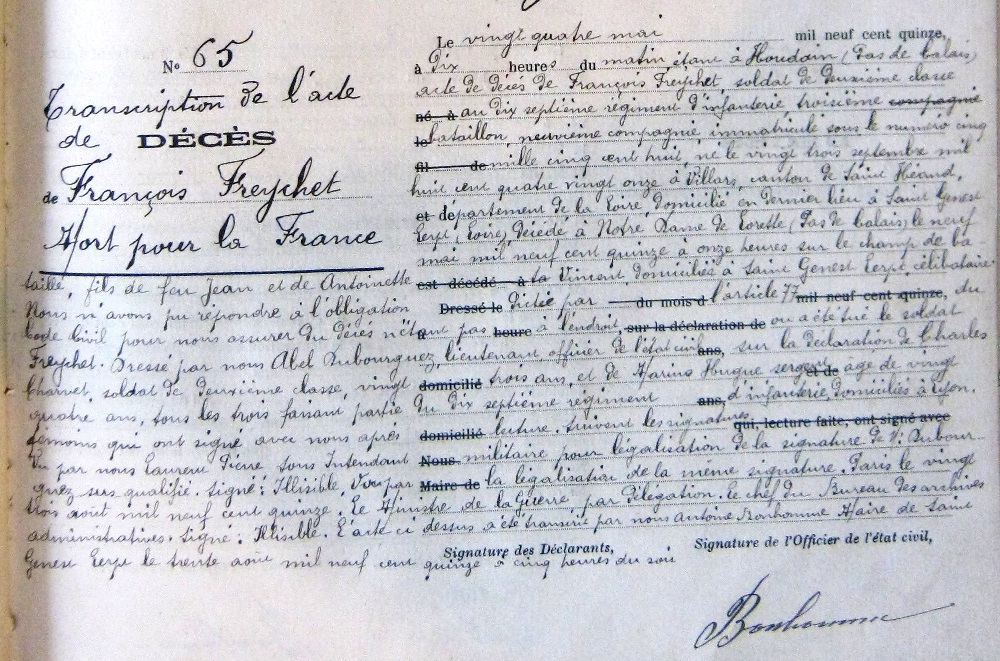 Nº 65
Transcription de l'acte
de DÉCÈS
de François Freychet
Mort pour la France
Le vingt quatre mai mil neuf cent quinze,
à dix heures du matin, étant à Houdain (Pas de Calais)
acte de décès de François Freychet, soldat de deuxième classe
né, à au dix septième régiment d'infanterie troisième compagnie
le bataillon, neuvième compagnie, immatriculé sous le numéro cinq
fil de mille cinq cent huit, né le vingt trois septembre mil
huit cent quatre vingt onze à Villars, canton de Saint Héand,
et département de la Loire, domicilié en dernier lieu à Saint Genest
Lerpt (Loire), décédé à Notre Dame de Lorette (Pas de Calais) le neuf
mai mil neuf cent quinze à onze heures sur le champ de ba-
taille, fils de feu Jean et de Antoinette est décédé à la Vincent domiciliés à Saint Genest Lerpt célibataire.
Nous n'avons pu répondre à l'obligation Dressé le dictée par du mois d l'article 77 mil neuf cent quinze, du
Code Civil pour nous assurer du décès n'étant pas heure à l'endroit, sur la déclaration de où a été tué le soldat
Freychet. Dressé par nous Abel Dubourguez, lieutenant officier de l'état civil ans, sur la déclaration de Charles
Charvet, soldat de deuxième classe, vingt domicilié trois ans, et de Marius sergent et de âgé de vingt
quatre ans, tous les trois faisant partie du dix septième régiment ans, d'infanterie, domiciliés à Lyon.
témoins qui ont signé avec nous après domicilié lecture. Suivent les signatures. qui, lecture faite, ont signé avec
Vu par nous Sous Intendant Nous militaire pour légalisation de la signature de Mr Dubour-
guez sus qualifié. Signé: Illisible. Vu par Maire de la légalisation de la même signature. Paris le vingt
trois août mil neuf cent quinze. Le Ministre de la Guerre, par délégation. Le chef du Bureau des archives
administratives. Signé: Illisible. L'acte ci dessus a été transcrit par nous Antoine Bonhomme Maire de Saint
Genest Lerpt le trente août mil neuf cent quinze à cinq heures du soir
Signature des Déclarants,
Signature de l'Officier de l'état civil,
Bonhomme